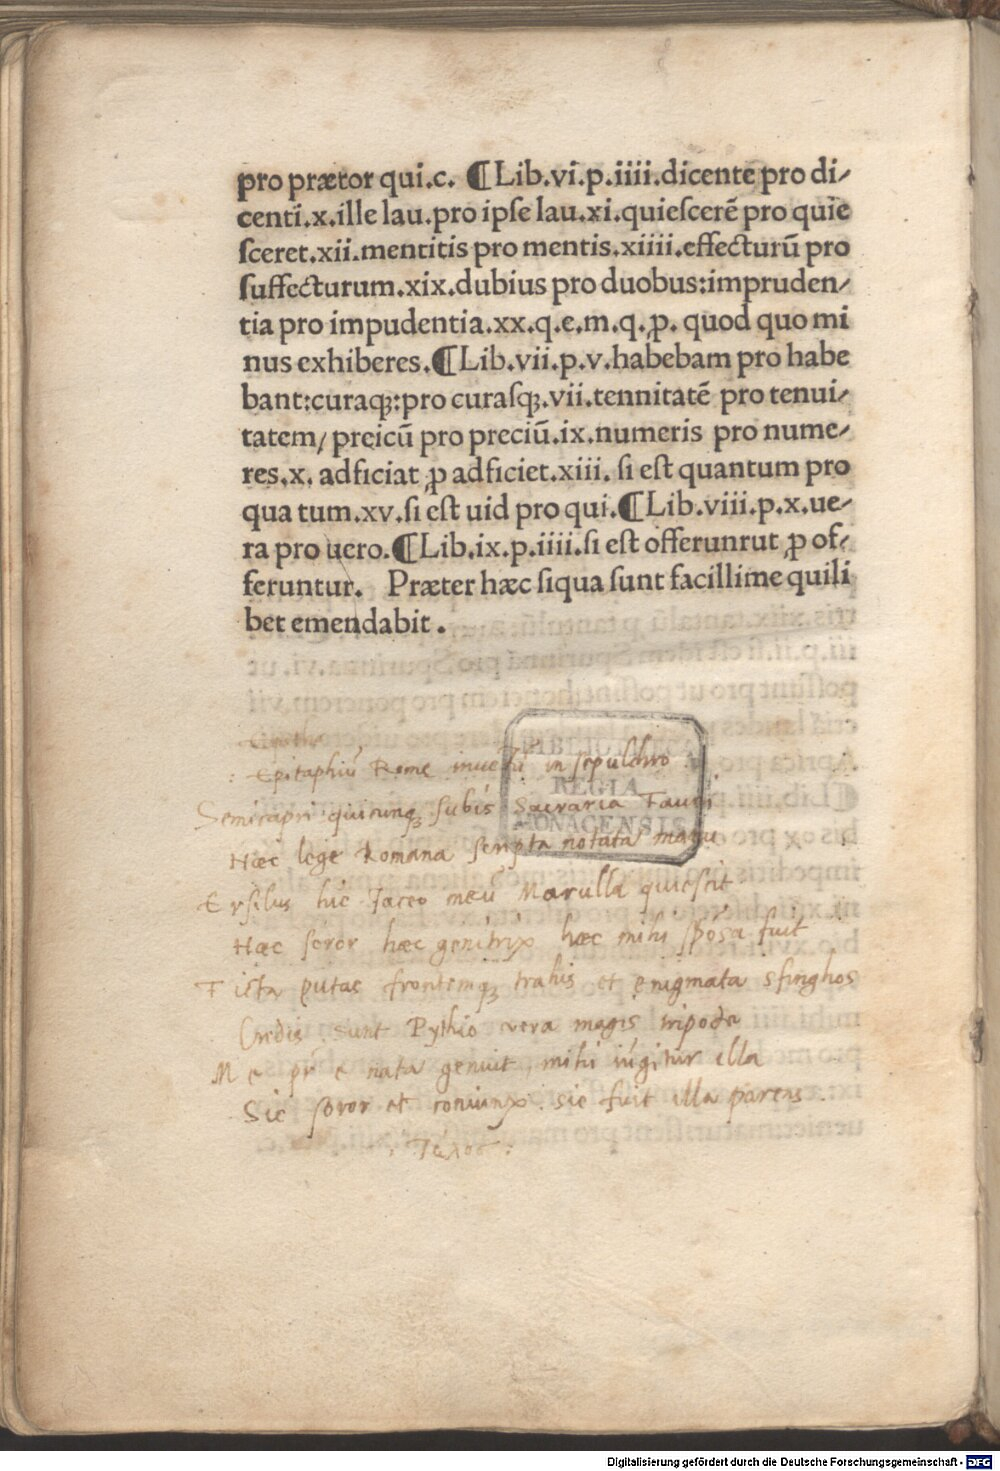 pro prætor qui.c. ¶Lib.vi.p.iiii.dicente pro di/
centi.x.ille lau.pro ipſe lau.xi.quieſcerē pro quie
ſceret.xii.mentitis pro mentis.xiiii.effecturū pro
ſuffecturum.xix.dubius pro duobus:impruden/
tia pro impudentia.xx.q.e.m.q.ꝓ. quod quo mi
nus exhiberes.¶Lib.vii.p.v.habebam pro habe
bant:curaqꝫ:pro curaſqꝫ.vii.tennitatē pro tenui/
tatem/ preicū pro preciū.ix.numeris pro nume/
res.x. adficiat ꝓ adficiet.xiii. ſi eſt quantum pro
qua tum.xv.ſi eſt uid pro qui.¶Lib.viii.p.x.ue/
ra pro uero.¶Lib.ix.p.iiii.ſi eſt offerunrut ꝓ of/
feruntur. Præter hæc ſiqua ſunt facillime quili
bet emendabit.
: Epitaphiū Rome inuētū in ſepulchro
Semicapri quicunqꝫ ſubis Sacraria Fauni
Hæc lege Romana ſcripta notata manu
Erſilus hic Jaceo mecū Marulla quieſcit
Hæc ſoror hæc genitrix hæc mihi ſpōſa fuit
Ficta putas frontemqꝫ trahis et enigmata Sfinghos
Credis. sunt Pythio vera magis tripode
Me pr̄ e nata genuit, mihi iūgitur illa
Sic ſoror et coniunx. sic fuit illa parens.
: Τέλος :
BIBLIOTHECA
REGIA
MONACENSIS
Digitalisierung gefördert durch die Deutsche Forschungsgemeinschaft - DFG